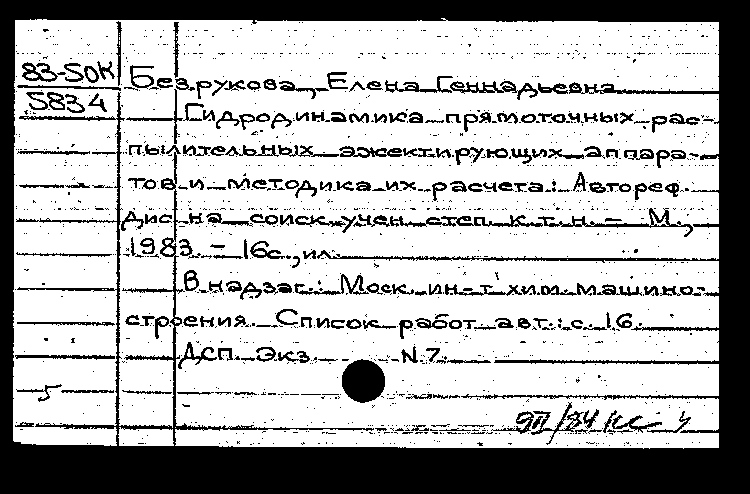 83-50К Безрукова, Елена Геннадьевна
5834 Гидродинамика прямоточных рас-
пылительных эжектирующих аппара-
тов и методика их расчета: Автореф.
Дис на соиск учен степ. к.т.н. – М.,
1983. – 16с., ил.
В надзаг.: Моск. ин-т хим. машино-
строения. Список работ авт.: с. 16.
ДСП. Экз. N7.
5